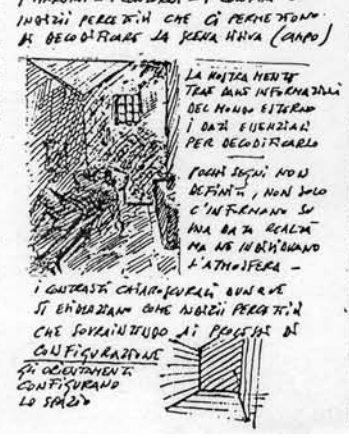 INDIZII PERCETTIVI CHE CI PERMETTONO
DI DECODIFICARE LA SCENA VISIVA (CAMPO)
LA NOSTRA MENTE
TRAE DALLE INFORMAZIONI
DEL MONDO ESTERNO
I DATI ESSENZIALI
PER DECODIFICARLO
POCHI SEGNI NON
DEFINITI, NON SOLO
C'INFORMANO SU
UNA DATA REALTÀ
MA NE INDIVIDUANO
L'ATMOSFERA -
I CONTRASTI CHIAROSCURALI DUNQUE
SI EVIDENZIANO COME INDIZII PERCETTIVI
CHE SOVRAINTENDO AI PROCESSI DI
CONFIGURAZIONE
GLI ORIENTAMENTI
CONFIGURANO
LO SPAZIO